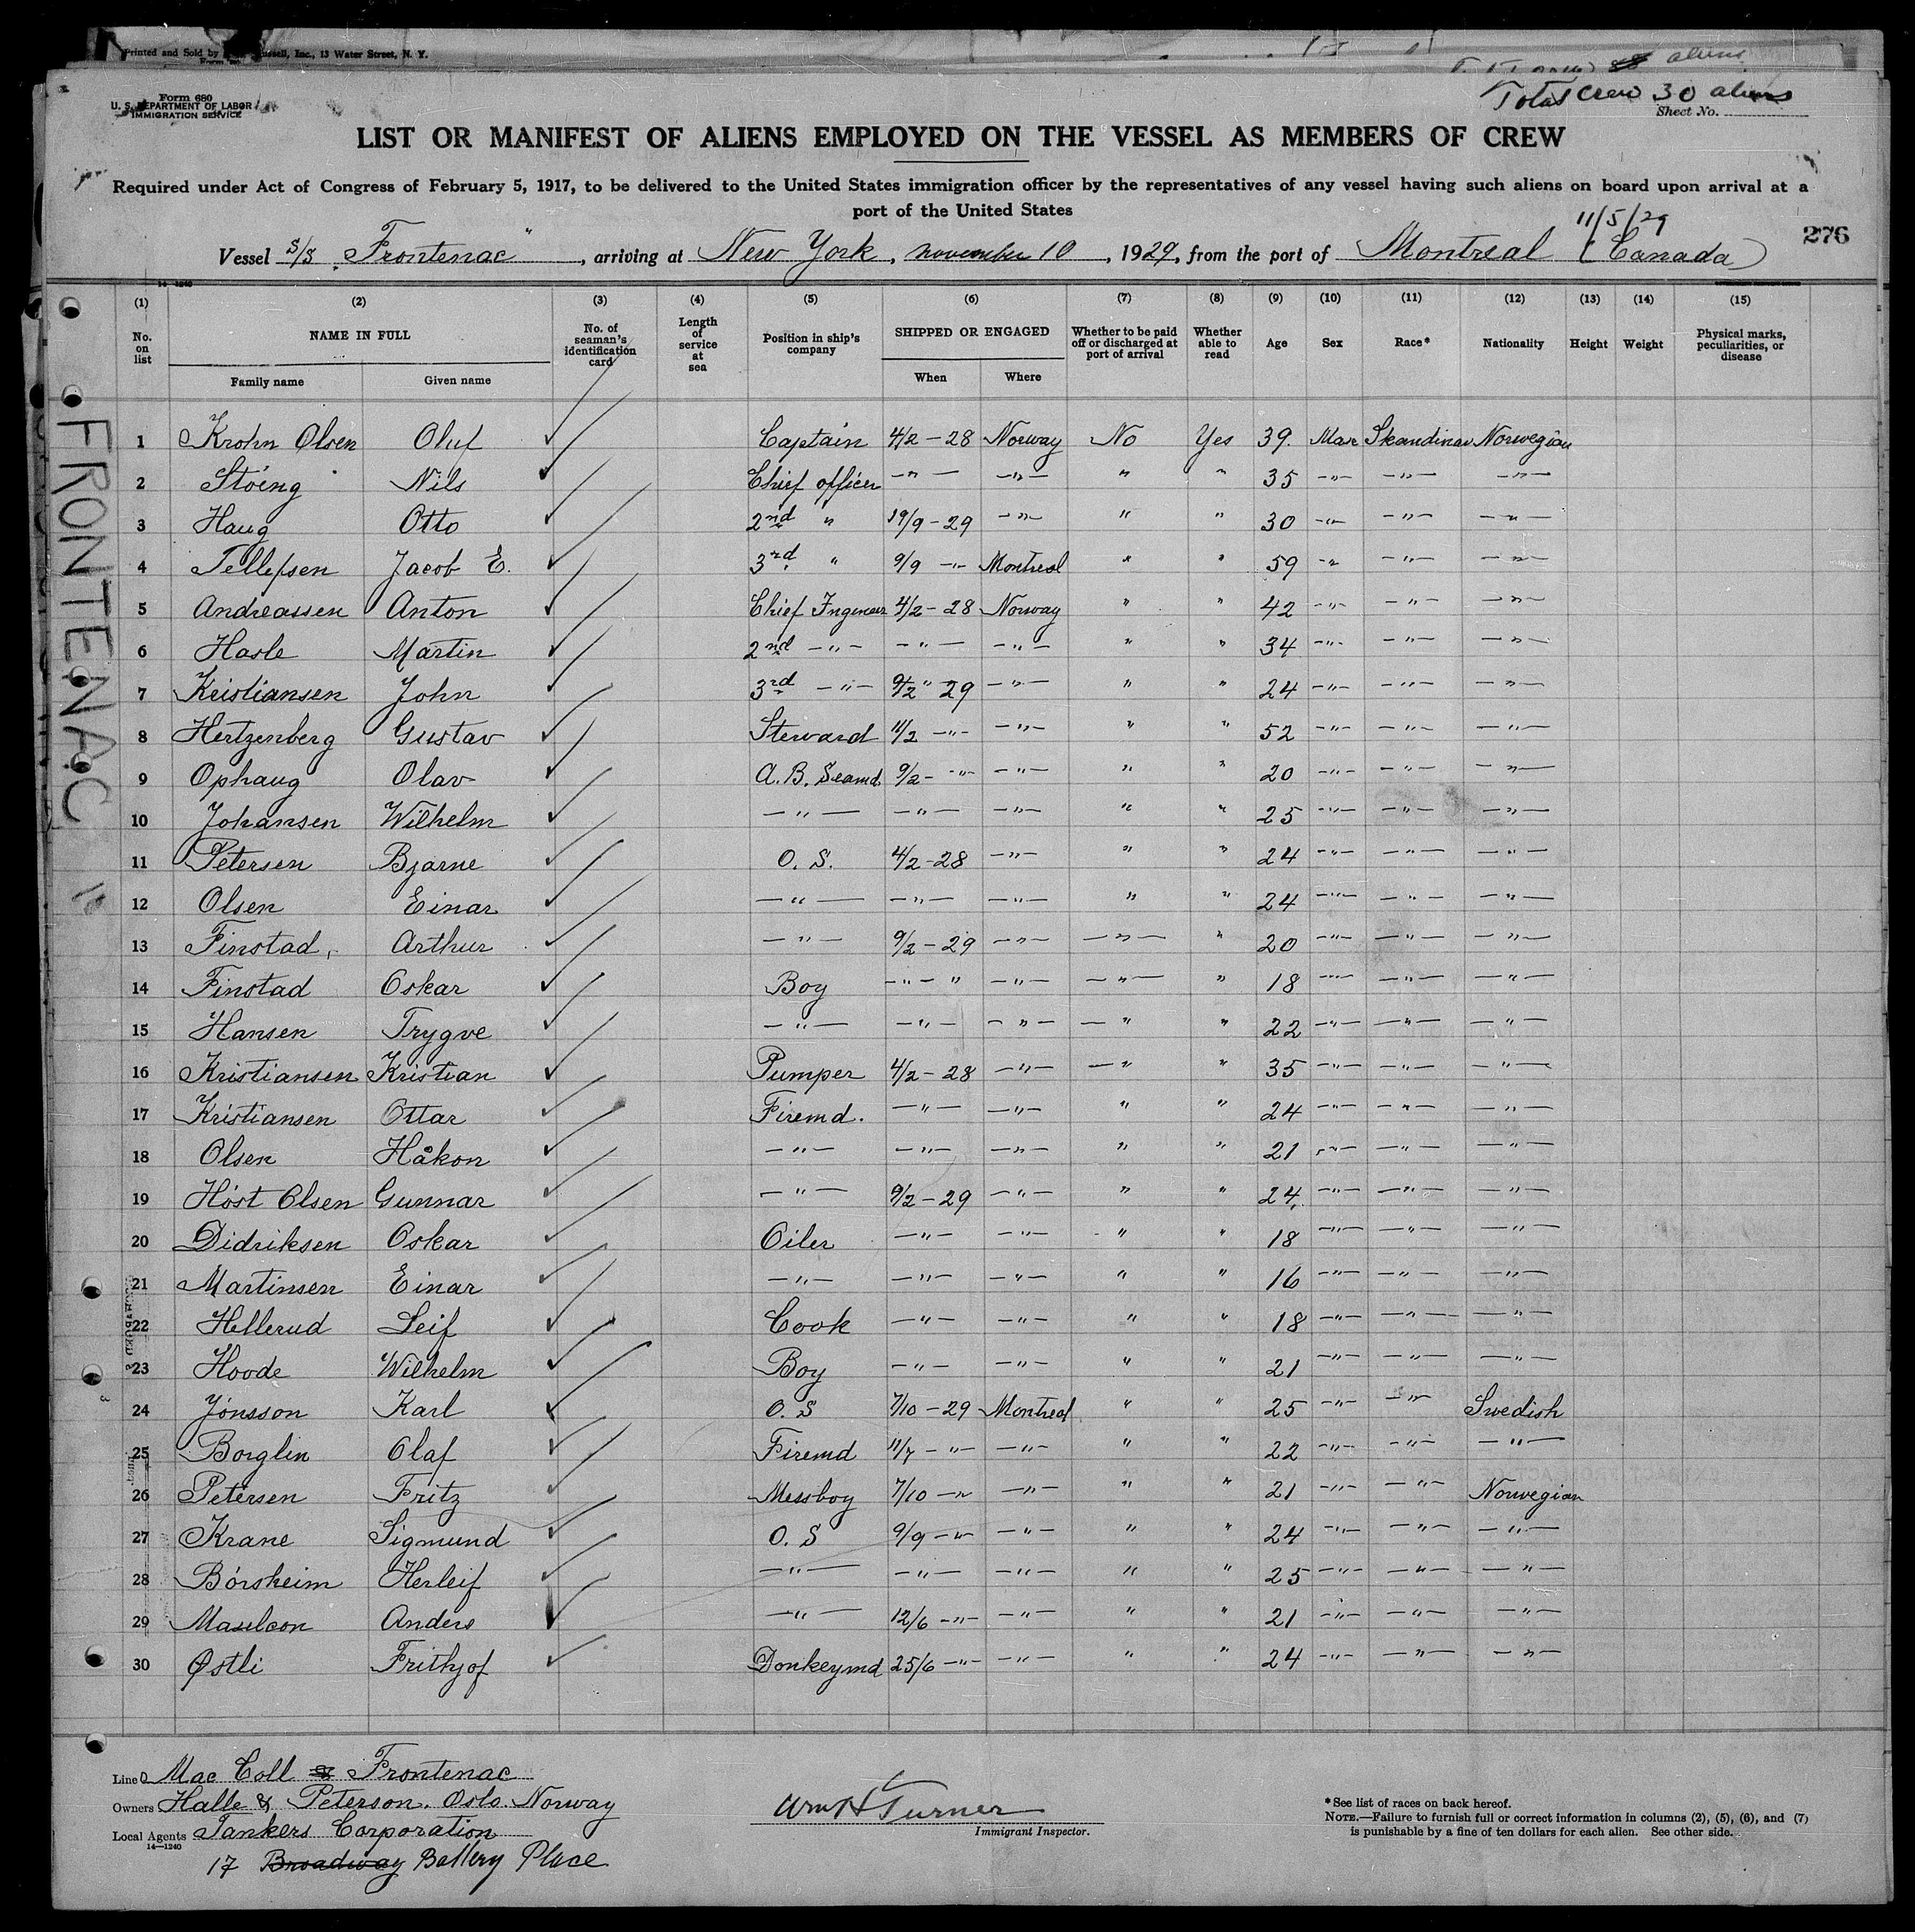 Printed and Sold by ussell, Inc., 13 Water Street, N. Y.
aliens
Total Crew 30 aliens
Form 680
U. S. DEPARTMENT OF LABOR
IMMIGRATION SERVICE
Sheet No.
LIST OR MANIFEST OF ALIENS EMPLOYED ON THE VESSEL AS MEMBERS OF CREW
Required under Act of Congress of February 5, 1917, to be delivered to the United States immigration officer by the representatives of any vessel having such aliens on board upon arrival at a
port of the United States
11/5/29
276
Vessel S/S „Frontenac“, arriving at New York, november 10, 1929, from the port of Montreal (Canada)
14—1240
(1) (2) (3) (4) (5) (6) (7) (8) (9) (10) (11) (12) (13) (14) (15)
No. on list NAME IN FULL No. of seaman's identification card Length of service at sea Position in ship's company SHIPPED OR ENGAGED Whether to be paid off or discharged at port of arrival Whether able to read Age Sex Race* Nationality Height Weight Physical marks, peculiarities, or disease
Family name Given name When Where
FRONTENAC
1 Krohn Olsen Oluf ✓ Captain 4/2 - 28 Norway No Yes 39. Man Skandinav Norwegian
2 Stöing Nils ✓ Chief officer -"- -"- " " 35 -"- -"- -"-
3 Haug Otto ✓ 2nd " 19/9 - 29 -"- " " 30 -"- -"- -"-
4 Tellefsen Jacob E. ✓ 3rd " 9/9 -"- Montreal " " 59 -"- -"- -"-
5 Andreassen Anton ✓ Chief Ingeneer 4/2 - 28 Norway " " 42 -"- -"- -"-
6 Hasle Martin ✓ 2nd -"- -"- -"- " " 34 -"- -"- -"-
7 Kristiansen John ✓ 3rd -"- 9/2 " 29 -"- " " 24 -"- -"- -"-
8 Hertzenberg Gustav ✓ Steward 11/2 -"- -"- " " 52 -"- -"- -"-
9 Ophaug Olav ✓ A.B. Seamd. 9/2 - -"- -"- " " 20 -"- -"- -"-
10 Johansen Wilhelm ✓ -"- -"- -"- " " 25 -"- -"- -"-
11 Petersen Bjarne ✓ O. S. 4/2 - 28 -"- " " 24 -"- -"- -"-
12 Olsen Einar ✓ -"- -"- -"- " " 24 -"- -"- -"-
13 Finstad, Arthur ✓ -"- 9/2 - 29 -"- -"- " 20 -"- -"- -"-
14 Finstad Oskar ✓ Boy -"- " -"- -"- " 18 -"- -"- -"-
15 Hansen Trygve ✓ -"- -"- -"- -" " 22 -"- -"- -"-
16 Kristiansen Kristian ✓ Pumper 4/2 - 28 -"- -" " 35 -"- -"- -"-
17 Kristiansen Ottar ✓ Firemd. -"- -"- " " 24 -"- -"- -"-
18 Olsen Håkon ✓ -"- -"- -"- " " 21 -"- -"- -"-
19 Höst Olsen Gunnar ✓ -"- 9/2 - 29 -"- " " 24 -"- -"- -"-
20 Didriksen Oskar ✓ Oiler -"- -"- " " 18 -"- -"- -"-
21 Martinsen Einar ✓ -"- -"- -"- " " 16 -"- -"- -"-
22 Hellerud Leif ✓ Cook -"- -"- " " 18 -"- -"- -"-
23 Hoode Wilhelm ✓ Boy -"- -"- " " 21 -"- -"- -"-
24 Jönsson Karl ✓ O. S 7/10 - 29 Montreal " " 25 -"- -"- Swedish
25 Borglin Olaf ✓ Firemd 11/7 - "- -"- " " 22 -"- -"- -"-
26 Petersen Fritz ✓ Messboy 7/10 -"- -"- " " 21 -"- -"- Norwegian
27 Krane Sigmund ✓ O. S 9/9 -"- -"- " " 24 -"- -"- -"-
28 Börsheim Herleif ✓ -"- -"- -"- " " 25 -"- -"- -"-
29 Anders ✓ -"- 12/6 -"- -"- " " 21 -"- -"- -"-
30 Østli Frithjof ✓ Donkeymd 25/6 -"- -"- " " 24 -"- -"- -"-
Line Mac Coll & Frontenac
Owners Halle & Peterson. Oslo. Norway
Local Agents Tankers Corporation
14—1240
17 Broadway Battery Place
Wm H Turner
Immigrant Inspector.
*See list of races on back hereof.
NOTE.—Failure to furnish full or correct information in columns (2), (5), (6), and (7)
is punishable by a fine of ten dollars for each alien. See other side.